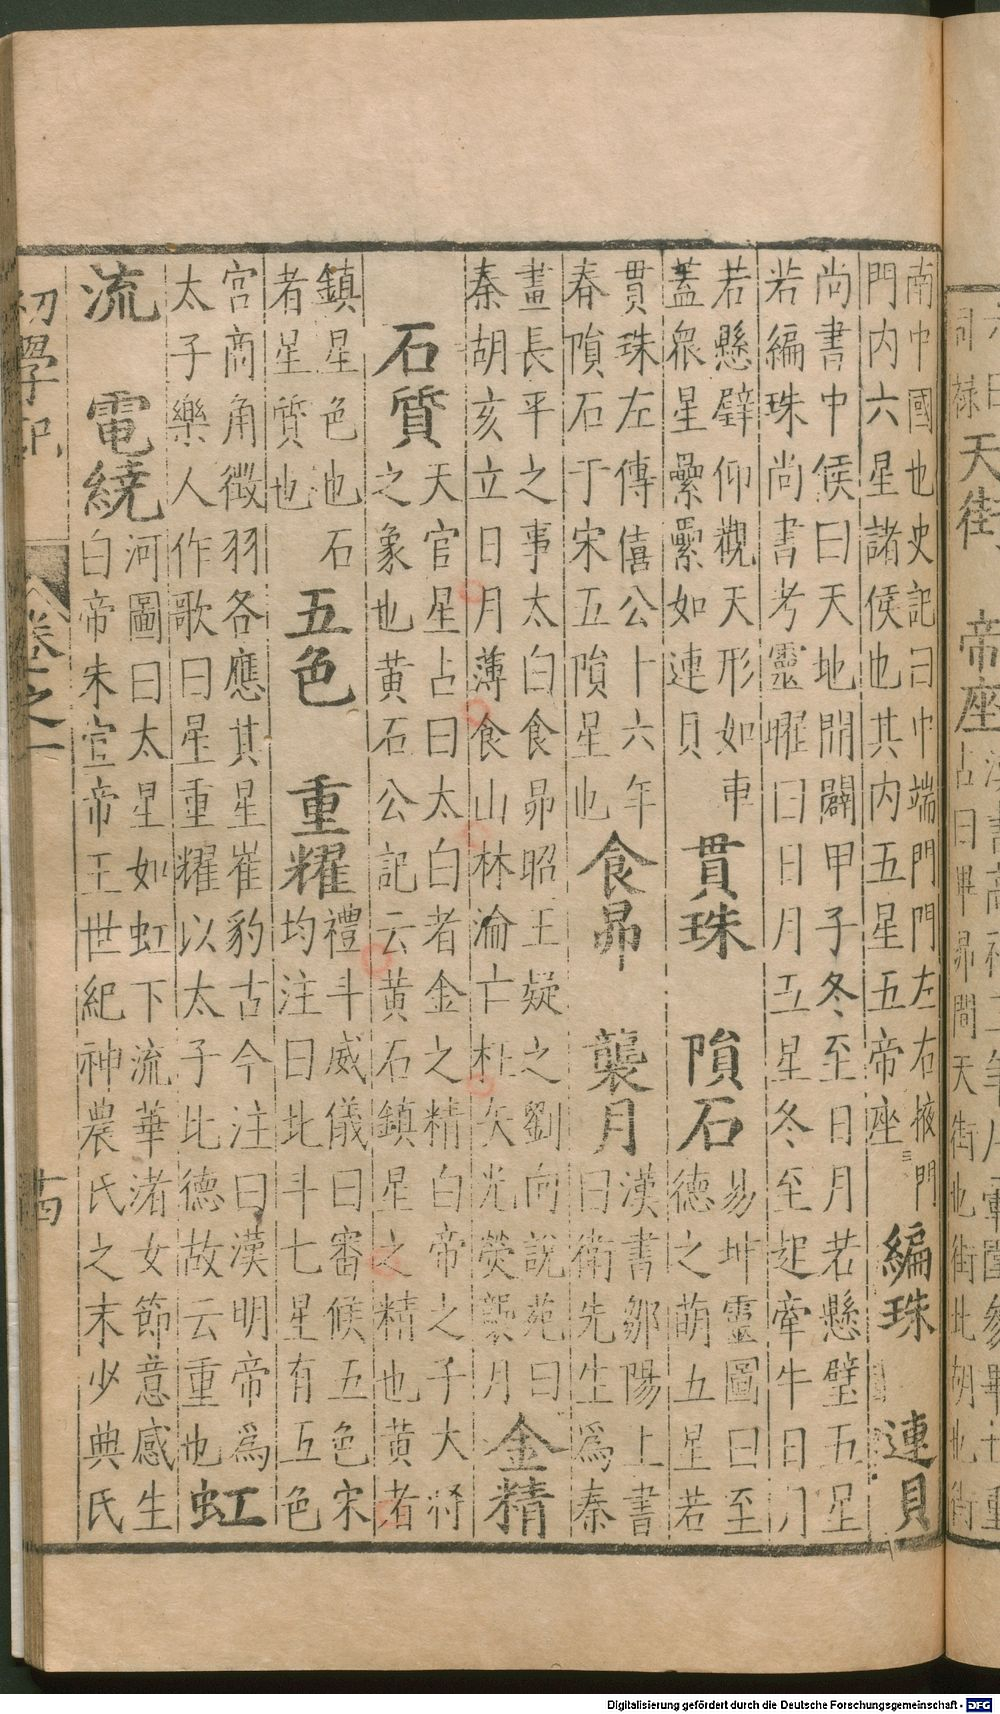 南中國也史記曰中端門門左右掖門
門内六星諸侯也其内五星五帝座
編珠　連貝
尚書中侯曰天地開闢甲子冬至日月若懸璧五星
若編珠尚書考靈曜曰日月五星冬至起牽牛日月
若懸璧仰觀天形如車
蓋衆星纍纍如連貝
貫珠　隕石
易坤靈圖曰至
德之萌五星若
貫珠左傳僖公十六年
春隕石于宋五隕星也
食昴　襲月
漢書鄒陽上書
曰衛先生爲秦
畫長平之事太白食昴昭王疑之劉向說苑曰
秦胡亥立日月薄食山林淪亡枉矢光熒襲月
金精
石質
天官星占曰太白者金之精白帝之子大將
之象也黄石公記云黄石鎮星之精也黄者
鎮星色也石
者星質也
五色　重耀
禮斗威儀曰審候五色宋
均注曰北斗七星有五色
宮商角徵羽各應其星崔豹古今注曰漢明帝爲
太子樂人作歌曰星重耀以太子比德故云重也
虹
流　電繞
河圖曰太星如虹下流華渚女節意感生
白帝朱宣帝王世紀神農氏之末少典氏
初學記
卷之一
十四
天街　帝座
占曰畢昴間天街也街北胡也街
Digitalisierung gefördert durch die Deutsche Forschungsgemeinschaft - DFG